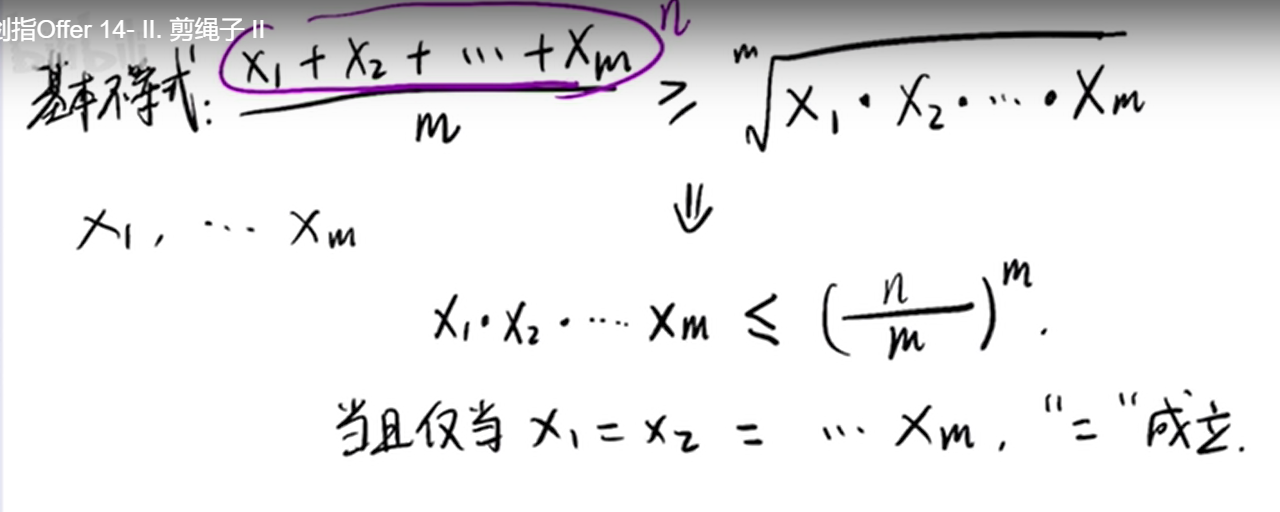 剑指Offer 14- II. 剪绳子 II
基本不等式: (x₁ + x₂ + ⋯ + xₘ)/m ≥ ᵐ√(x₁ · x₂ · ⋯ · xₘ)
n
x₁, ⋯ xₘ ⇓
x₁ · x₂ · ⋯ xₘ ≤ (n/m)ᵐ.
当且仅当 x₁ = x₂ = ⋯ xₘ, "="成立.